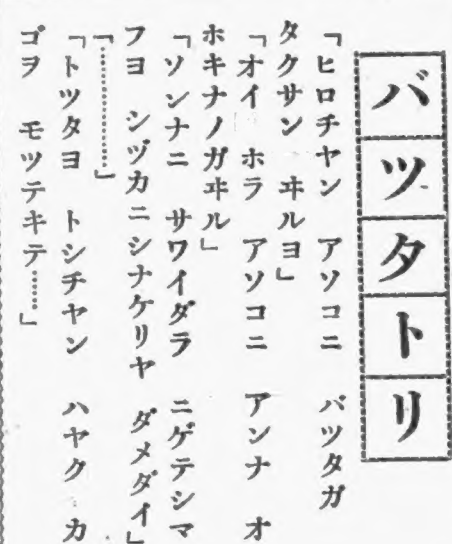 バツタトリ
「ヒロチヤン アソコニ バツタガ
タクサン ヰルヨ」
「オイ ホラ アソコニ アンナ オ
ホキナノガヰル」
「ソンナニ サワイダラ ニゲテシマ
フヨ シヅカニシナケリヤ ダメダイ」
「………………」
「トツタヨ トシチヤン ハヤク カ
ゴヲ モツテキテ……」